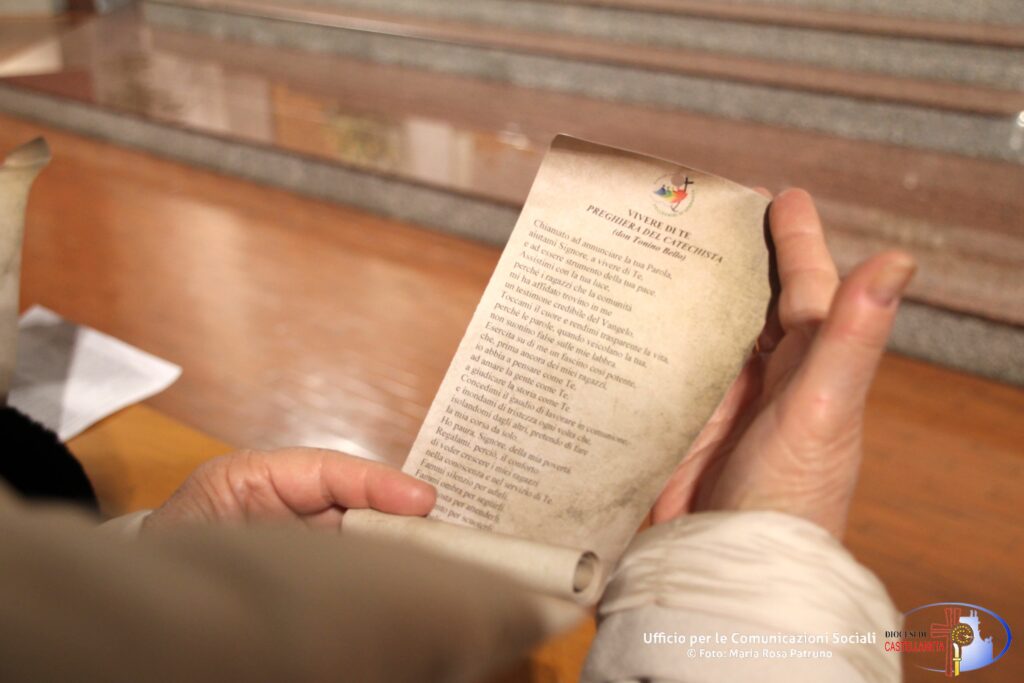 VIVERE DI TE
PREGHIERA DEL CATECHISTA
(don Tonino Bello)
Chiamato ad annunciare la tua Parola,
aiutami Signore, a vivere di Te,
e ad essere strumento della tua pace.
Assistimi con la tua luce,
perché i ragazzi che la comunità
mi ha affidato trovino in me
un testimone credibile del Vangelo.
Toccami il cuore e rendimi trasparente la vita,
perché le parole, quando veicolano la tua,
non suonino false sulle mie labbra.
Esercita su di me un fascino così potente,
che, prima ancora dei miei ragazzi,
io abbia a pensare come Te,
ad amare la gente come Te,
a giudicare la storia come Te.
Concedimi il gaudio di lavorare in comunione,
e inondami di tristezza ogni volta che,
isolandomi dagli altri, pretendo di fare
la mia corsa da solo.
Ho paura, Signore, della mia povertà.
Regalami, perciò, il conforto
di veder crescere i miei ragazzi
nella conoscenza e nel servizio di Te.
Fammi silenzio per udirli.
Fammi ombra per seguirli.
sosta per attenderli.
per scuoterli.
Ufficio per le Comunicazioni Sociali
© Foto: Maria Rosa Patruno
DIOCESI DI
CASTELLANETA